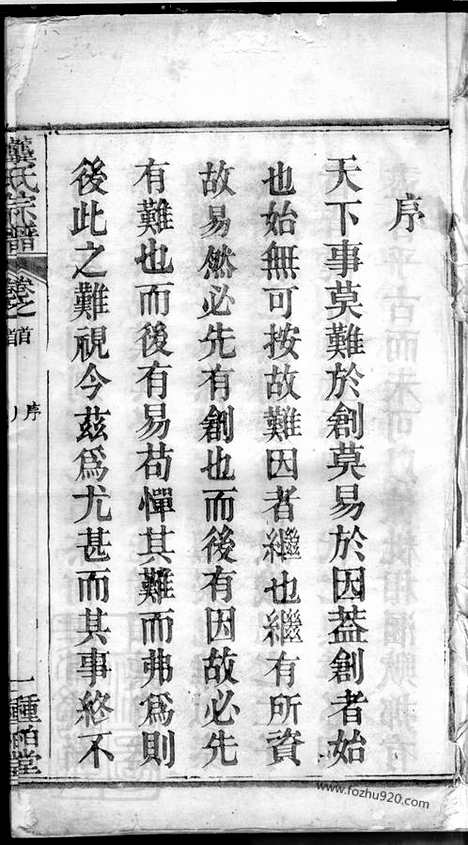 序
天下事莫難於創莫易於因葢創者始
也始無可按故難因者繼也繼有所資
故易然必先有創也而後有因故必先
有難也而後有易苟憚其難而弗爲則
後此之難視今茲爲尤甚而其事終不
龔氏宗譜
卷之首
首
序
一
www.fozhu920.com